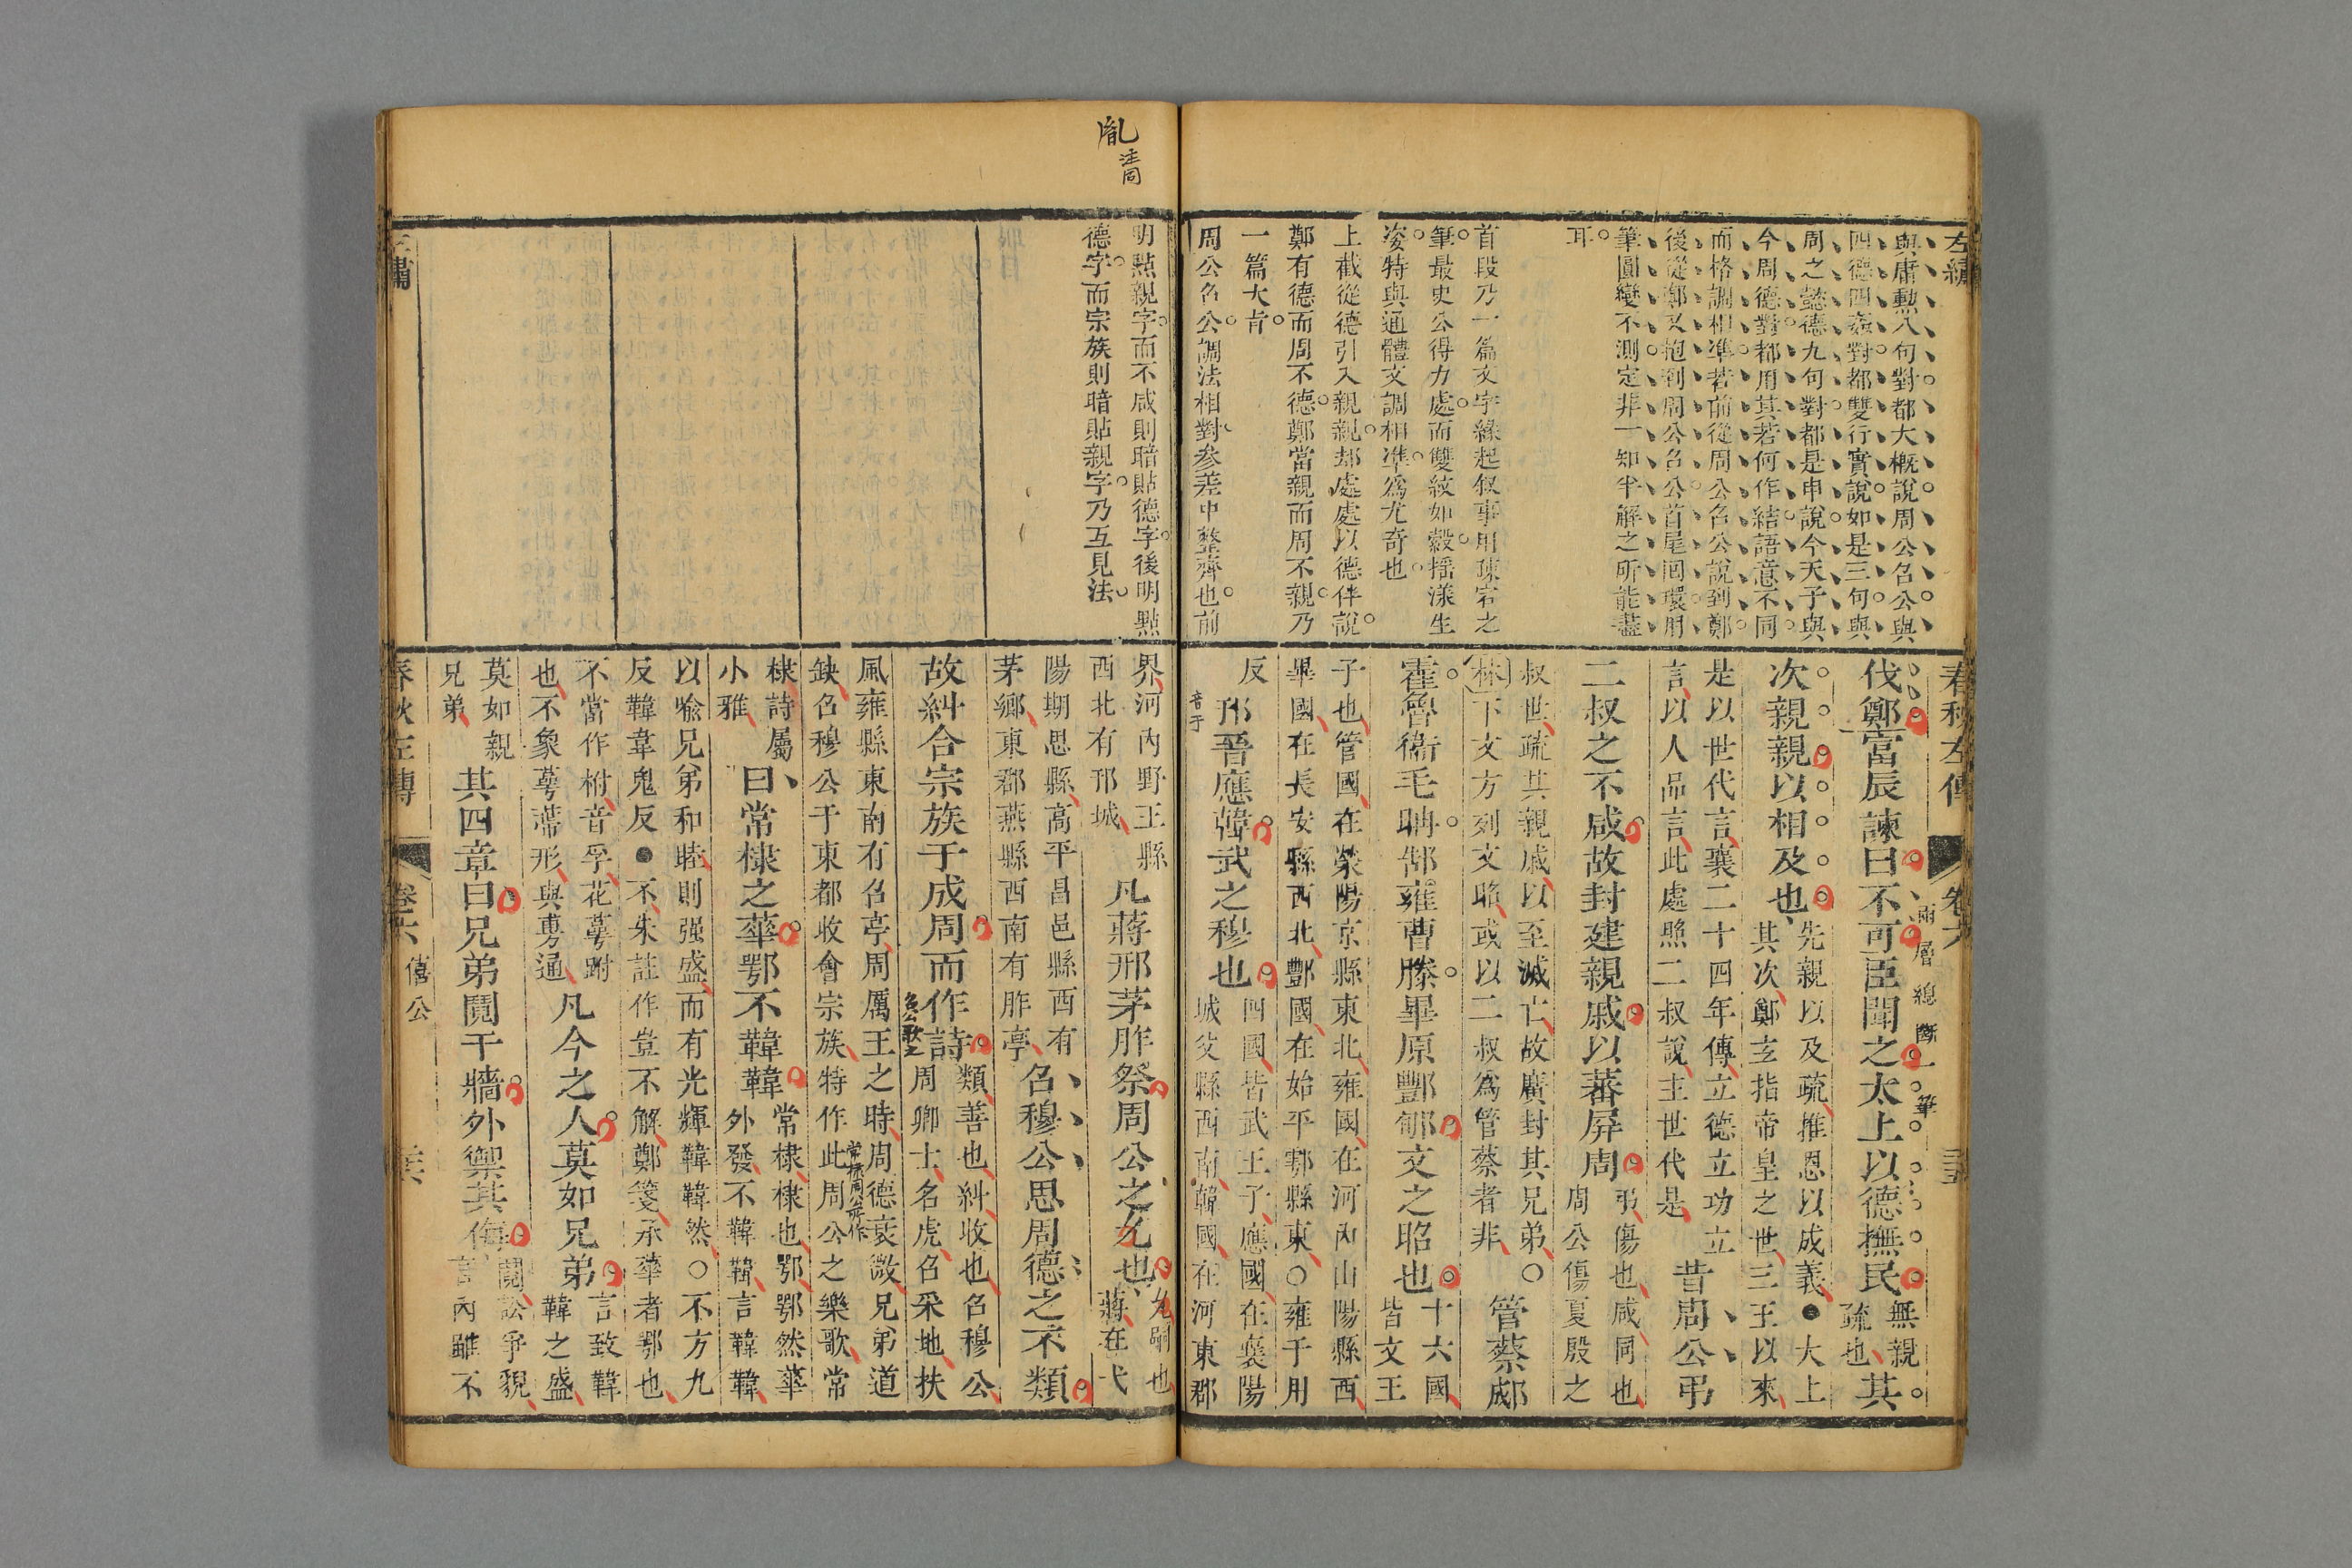 左繡
與庸勲八句對都大概說周公召公與
四德四姦對都雙行實說如是三句與
周之懿德九句對都是申說今天子與
今周德對都用其若何作結語意不同
而格調相準若前從周公召公說到鄭
後從鄭又抱到周公召公首尾囘環用
筆圓變不測定非一知半解之所能盡
耳
首段乃一篇文字緣起叙事用疎宕之
筆最史公得力處而雙紋如縠揺漾生
姿特與通體文調相準爲尤奇也
上截從德引入親親却處處以德伴說
鄭有德而周不德鄭當親而周不親乃
一篇大㫖
周公召公調法相對参差中整齊也前
春秋左傳 卷六 三五
兩層總斷一筆
伐鄭富辰諫曰不可臣聞之太上以德撫民
無親
疏也
其
次親親以相及也
先親以及疏推恩以成義●大上
其次鄭玄指帝皇之世三王以來
是以世代言襄二十四年傳立德立功立
言以人品言此處照二叔說主世代是
昔周公弔
二叔之不咸故封建親戚以蕃屏周
弔傷也咸同也
周公傷夏殷之
叔世疏其親戚以至滅亡故廣封其兄弟○
林下文方列文昭或以二叔爲管蔡者非
管蔡郕
霍魯衞毛聃郜雍曹滕畢原酆郇文之昭也
十六國
皆文王
子也管國在滎陽京縣東北雍國在河內山陽縣西
畢國在長安縣西北酆國在始平鄠縣東○雍于用
反
音于
邘晉應韓武之穆也
四國皆武王子應國在襄陽
城父縣西南韓國在河東郡
胤
注同
明㸃親字而不咸則暗貼德字後明㸃
德字而宗族則暗貼親字乃互見法
界河內野王縣
西北有邘城
凡蔣邢茅胙祭周公之胤也
胤嗣也
蔣在弋
陽期思縣高平昌邑縣西有
茅鄉東郡燕縣西南有胙亭
召穆公思周德之不類
故糾合宗族于成周而作詩
召公歌之
類善也糾收也召穆公
周卿士名虎召采地扶
風雍縣東南有召亭周厲王之時周德衰微兄弟道
缺召穆公于東都收會宗族特作此周公之樂歌常
常棣周公所作
棣詩屬
小雅
曰常棣之華鄂不韡韡
常棣棣也鄂鄂然華
外發不韡韡言韡韡
以喻兄弟和睦則强盛而有光輝韡韡然○不方九
反韡韋鬼反●不朱註作豈不解鄭箋承華者鄂也
不當作柎音孚花萼跗
也不象萼蔕形與尃通
凡今之人莫如兄弟
言致韡
韡之盛
莫如親
兄弟
其四章曰兄弟鬩于牆外禦其侮
鬩訟爭貌
言內雖不
春秋左傳 卷六 僖公 三六